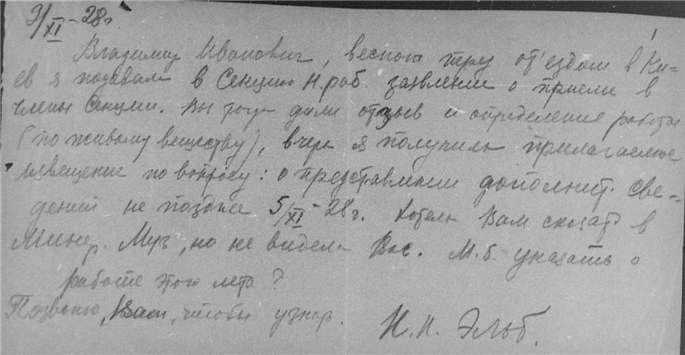 3/XI - 28 г.
Владимир Иванович, весною пред от'ездом в Ки-
ев я подавал в Секцию Н. раб. заявление о приеме в
члены Секции. Вы тогда дали отзыв и определение работы
(по живому веществу), вчера я получила прилагаемое
извещение по вопросу: о представлении дополнит. све-
дений не позднее 5/XI - 28 г. Хотела Вам сказать в
Минер. Муз, но не видела Вас. М. б. указать о
работе этого лета?
Позвоню Вам, чтобы узнать.